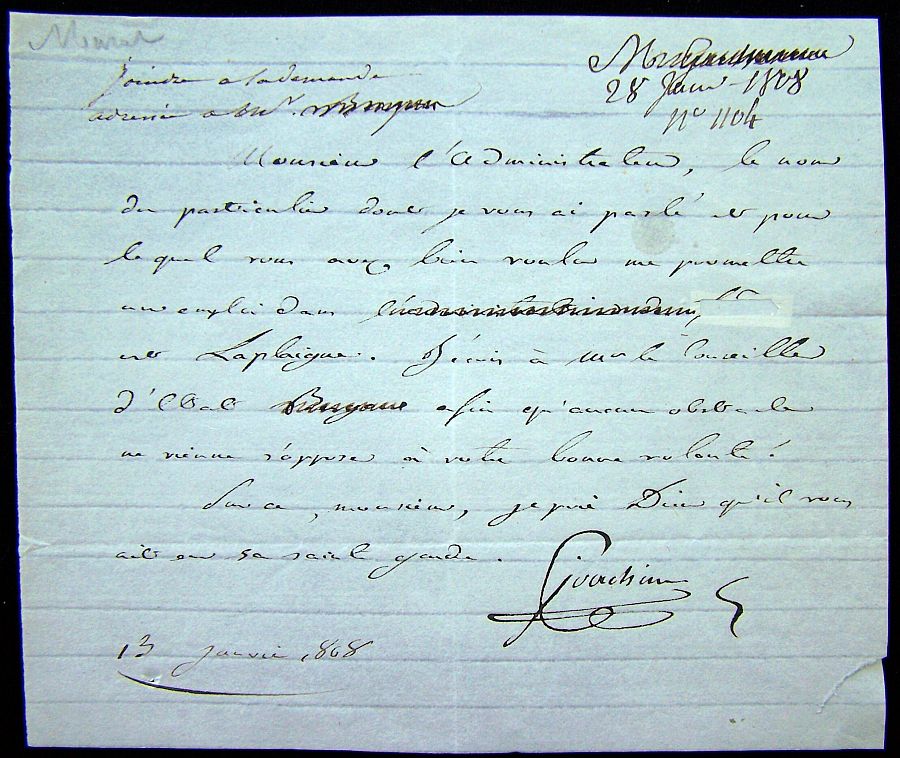 Murat
joindre à la demande
adressée à Mr.
28 Janv. 1808
no 1104
Monsieur l'administrateur, le nom
du particulier dont je vous ai parlé et pour
lequel vous avez bien voulu me promettre
un emploi dans
est Laplaigne. J'écris à Mr le Conseiller
d'Etat afin qu'aucun obstacle
ne vienne s'opposer à votre bonne volonté.
Sur ce, monsieur, je prie Dieu qu'il vous
ait en sa sainte garde.
Joachim
13 janvier 1808